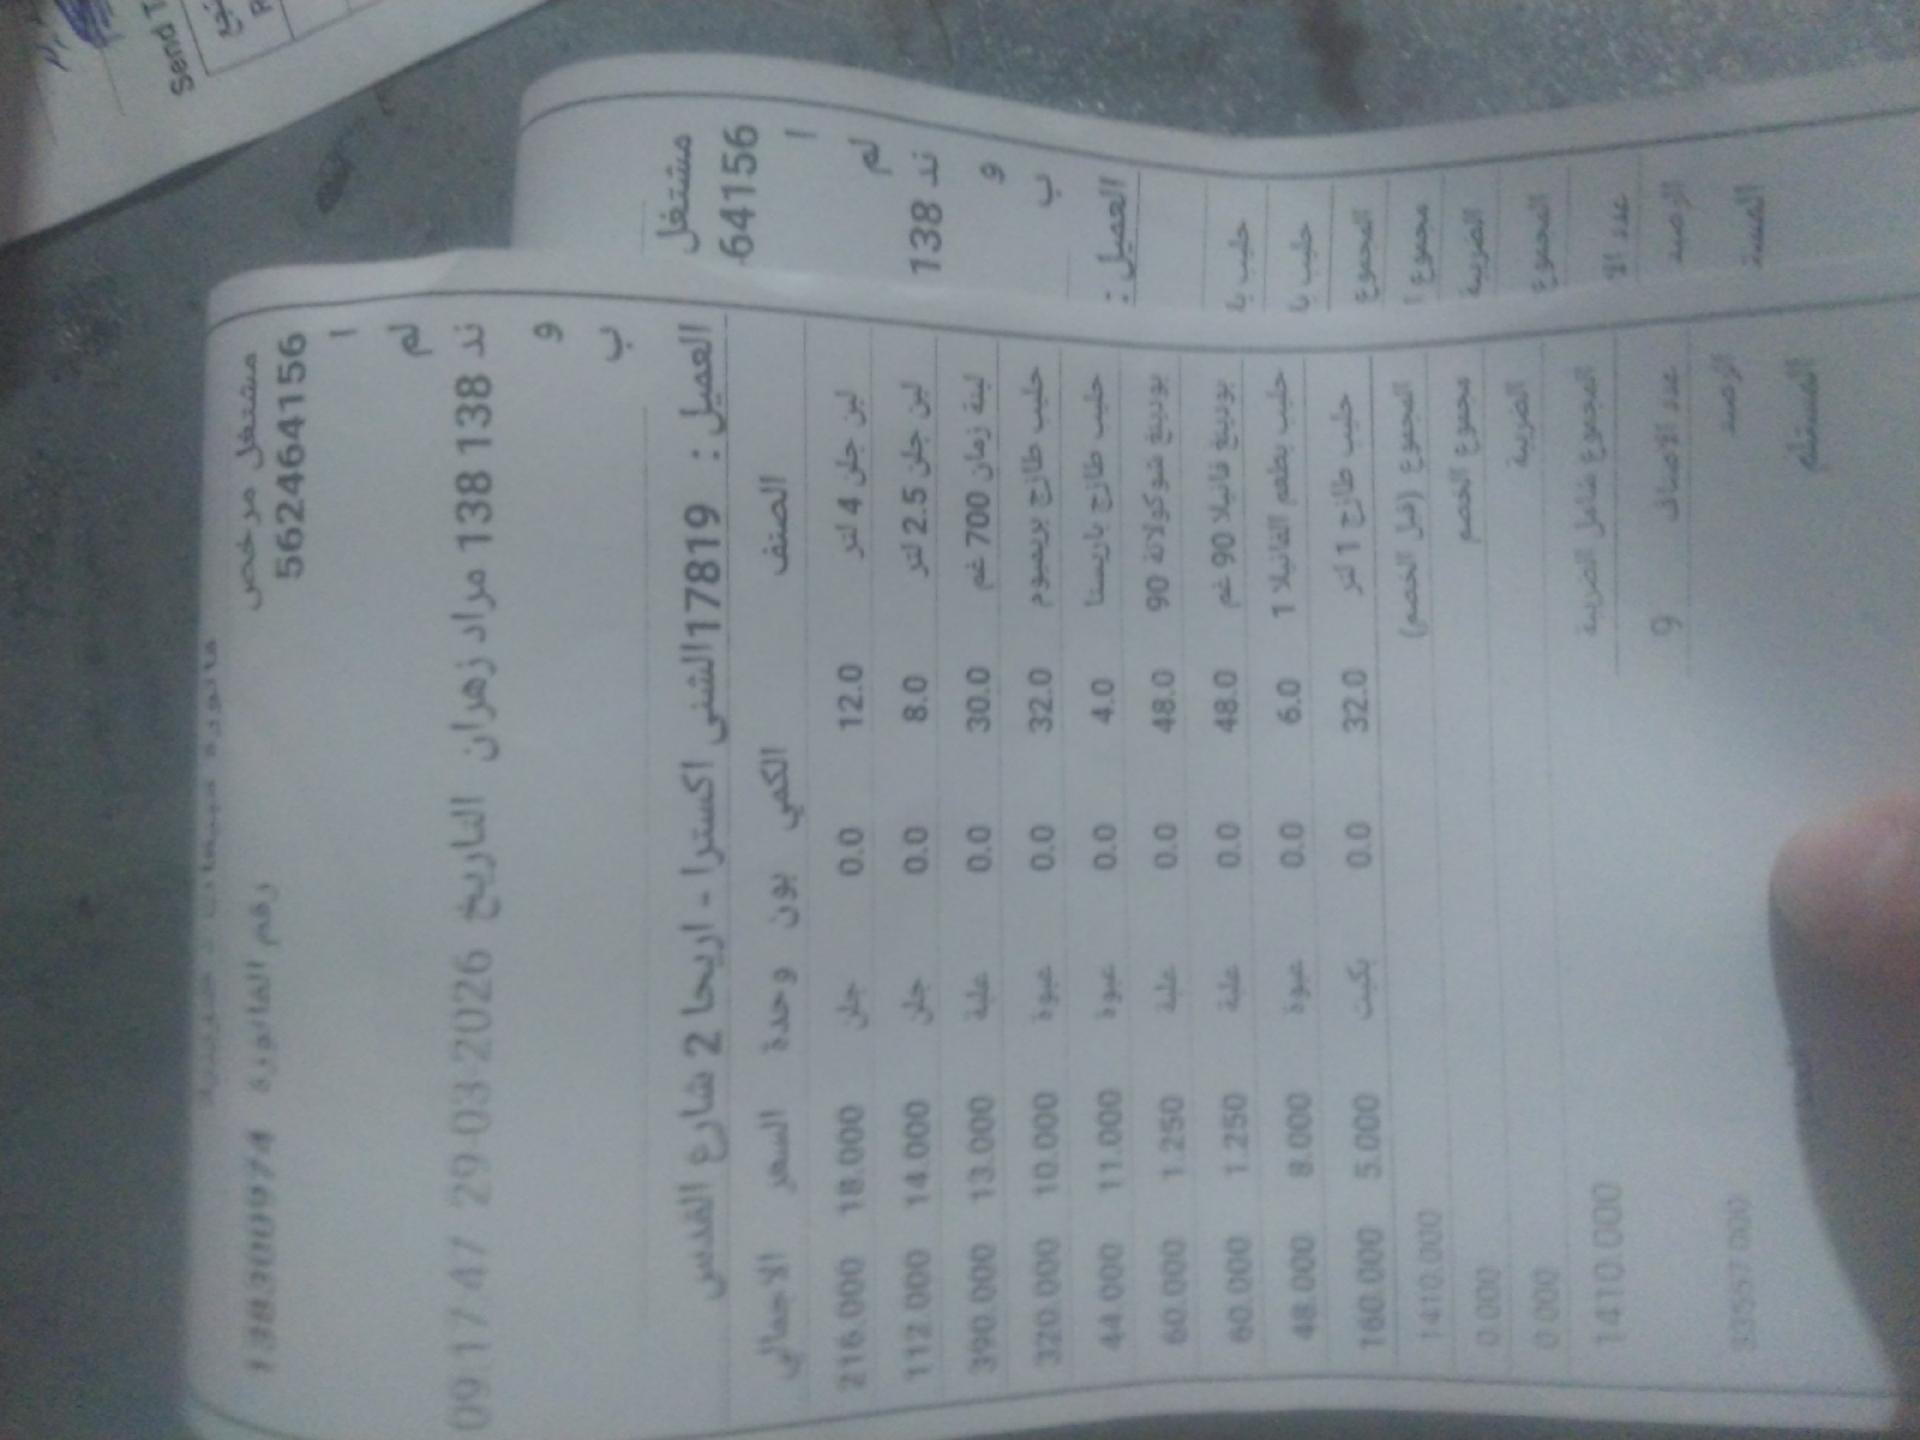 فاتورة مبيعات
مشتغل مرخص 562464156 رقم الفاتورة 1383000974
ا
لم
ند 138 138 مراد زهران التاريخ 29-03-2026 09:17:47
و
ب
العميل : 17819الشني اكسترا - اريحا 2 شارع القدس
الصنف الكمي بون وحدة السعر الاجمالي
لبن جلن 4 لتر 12.0 0.0 جلن 18.000 216.000
لبن جلن 2.5 لتر 8.0 0.0 جلن 14.000 112.000
لبنة زمان 700 غم 30.0 0.0 علبة 13.000 390.000
حليب طازج بريميوم 32.0 0.0 عبوة 10.000 320.000
حليب طازج باريستا 4.0 0.0 عبوة 11.000 44.000
بودينغ شوكولاتة 90 48.0 0.0 علبة 1.250 60.000
بودينغ فانيلا 90 غم 48.0 0.0 علبة 1.250 60.000
حليب بطعم الفانيلا 1 6.0 0.0 عبوة 8.000 48.000
حليب طازج 1 لتر 32.0 0.0 بكيت 5.000 160.000
المجموع (قبل الخصم) 1410.000
مجموع الخصم 0.000
الضريبة 0.000
المجموع شامل الضريبة 1410.000
عدد الاصناف 9
الرصيد
المستلم
مشتغل
64156
ا
لم
ند 138
و
ب
العميل :
حليب با
حليب با
المجموع
مجموع ا
الضريبة
المجموع
عدد الا
الرصيد
المست
Send T